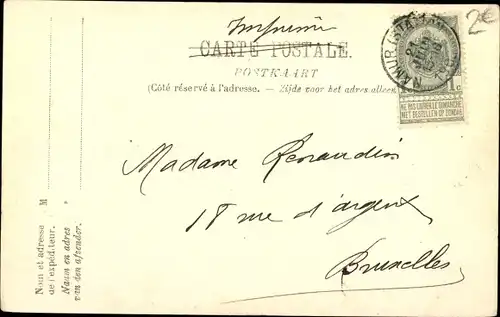 Imprimé
2€
CARTE POSTALE.
POSTKAART
(Côté réservé à l'adresse. — Zijde voor het adres alleen
NAMUR (STATION)
1c
NE PAS LIVRER LE DIMANCHE
NIET BESTELLEN OP ZONDAG
Madame Renaudin
18 rue d'argent
Bruxelles
M
Nom et adresse
de l'expéditeur.
Naam en adres
van den afzender.